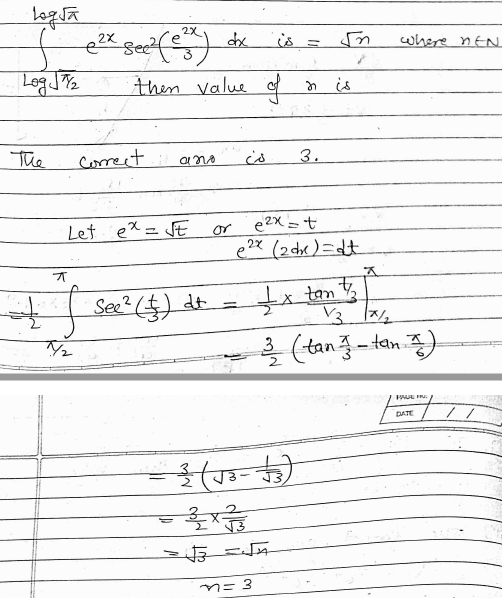 ∫_{Log√π/2}^{Log√π} e^{2x} sec²(e^{2x}/3) dx is = √n where n∈N
then value of n is
The correct ans is 3.
Let e^x = √t or e^{2x} = t
e^{2x} (2dx) = dt
= 1/2 ∫_{π/2}^{π} sec²(t/3) dt = 1/2 × tan t/3 / 1/3 |_{π/2}^{π}
= 3/2 (tan π/3 - tan π/6)
PAGE NO.
DATE / /
= 3/2 (√3 - 1/√3)
= 3/2 × 2/√3
= √3 = √n
n = 3